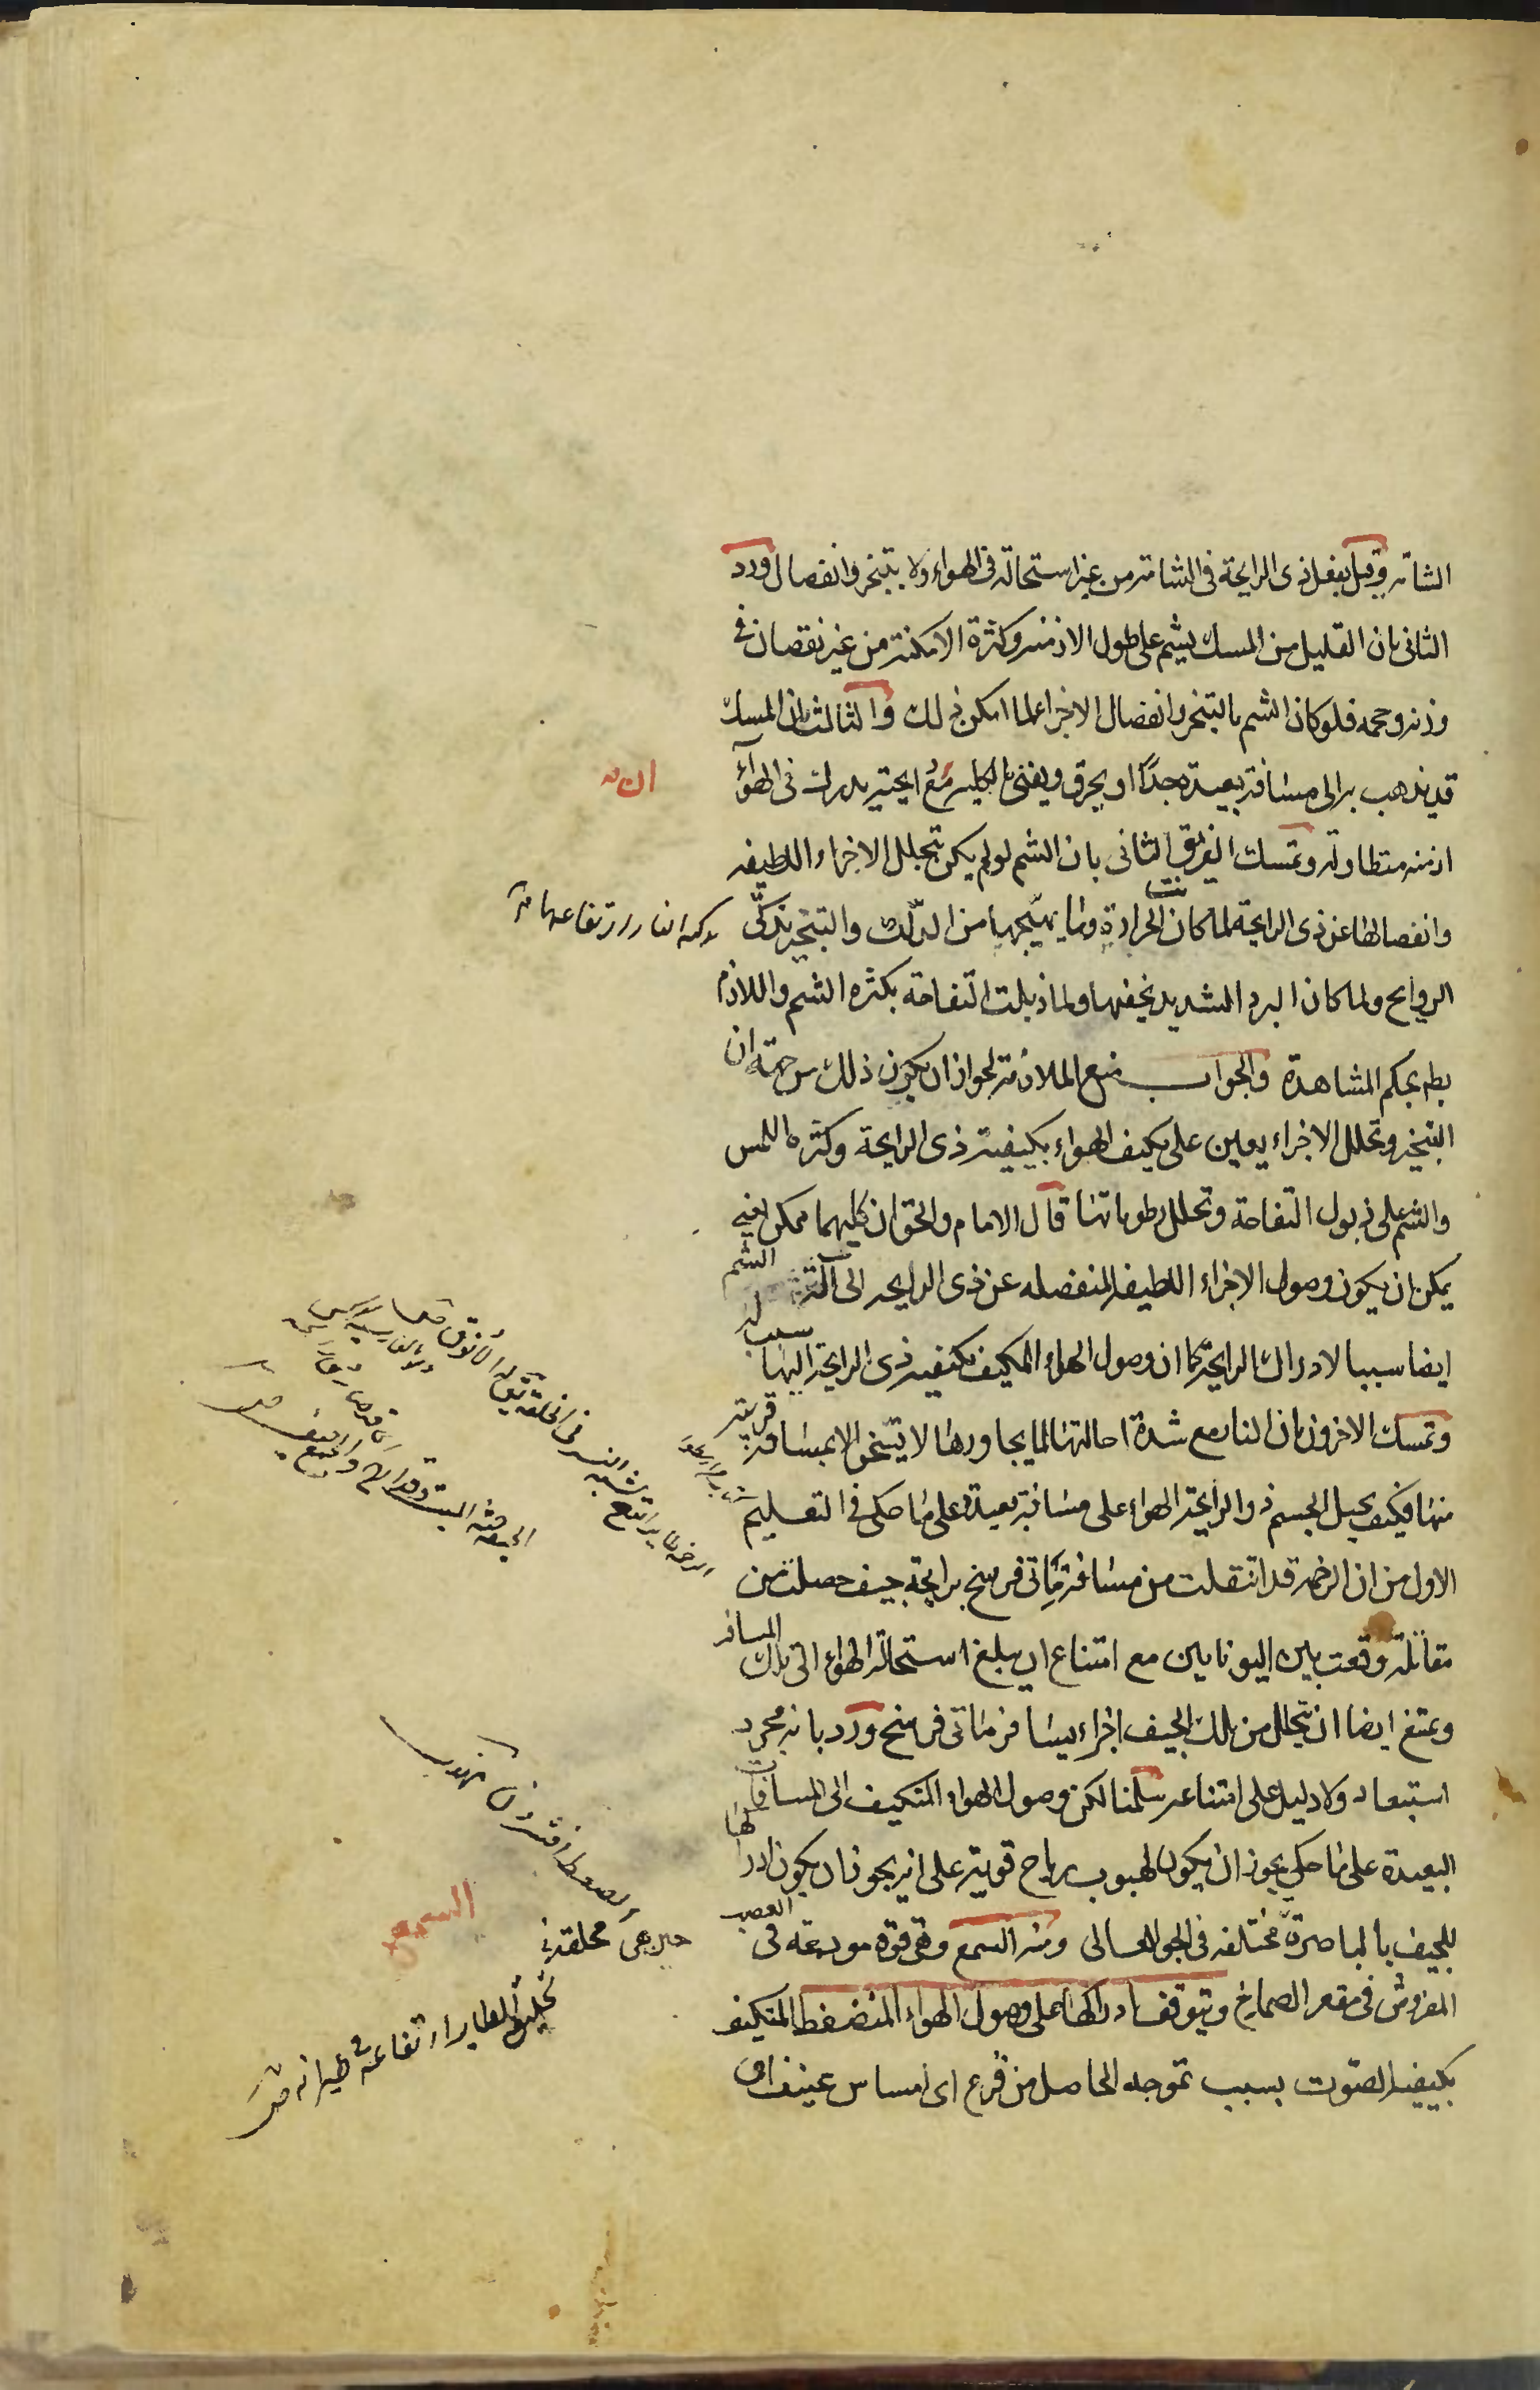 الشامة وقيل بفعل ذى الرايحة فى الشامة من غير استحالة فى الهواء ولا بتبخر وانفصال ورد
الثانى بان القليل من المسك يشم على طول الازمنة وكثرة الامكنة من غير نقصان فى
وزنه وحجمه فلو كان الشم بالتبخر وانفصال الاجزاء لما امكن ذلك والثالث بان المسك
قد يذهب به الى مسافة بعيدة جدًا او يحرق ويفنى بالكلية مع ان رايحته يدرك فى الهوآء
ازمنه متطاولة وتمسك الفريق الثانى بان الشم لو لم يكن بتحلل الاجزاء اللطيفه
وانفصالها عن ذى الرايحة لما كانت الحرارة وما يهيّجها من الدّلك والتبخير تذكّى
الروايح ولما كان البرد الشديد يخفيها ولما ذبلت التفاحة بكثره الشم واللازم
بط بحكم المشاهدة والجواب منع الملازمة لجواز ان يكون ذلك من جهة ان
التبخير وتحلل الاجزاء يعين على تكيف الهواء بكيفية ذى الرايحة وكثره اللمس
والشم على ذبول التفاحة وتحلل رطوباتها قال الامام والحق ان كليهما ممكن فيه
يمكن ان يكون وصول الاجزاء اللطيفه المنفصله عن ذى الرايحه الى آلة الشم
ايضا سببا لادراك الرايحة كما ان وصول الهواء المتكيف بكيفيه ذى الرايحة اليها سبب له
وتمسك الاخرون بان النار مع شدة احالتها لما يجاورها لا يتسخن الا بمسافة قريبة
منها فكيف يحيل الجسم ذو الرايحة الهواء على مسافة بعيدة على ما حكى فى التعليم
الاول من ان الرخمة قد انتقلت من مسافة مأتى فرسخ برايحة جيف حصلت من
مقاتلة وقعت بين اليونانيين مع امتناع ان يبلغ استحالة الهواء الى تلك المسافة
ويمتنع ايضا ان يتحلل من تلك الجيف اجزاء يسافر مأتى فرسخ ورد بانه مجرد
استبعاد ولا دليل على امتناعه سلمنا لكن وصول الهواء المتكيف الى المسافات
البعيدة على ما حكى يجوز ان يكون لهبوب رياح قوية على انه يجوز ان يكون ادراكها
للجيف بالباصرة مختلفه فى الجو العالى ومنه السمع وهى قوة مودعة فى العصب
المفروش فى مقعر الصماخ ويتوقف ادراكها على وصول الهواء المنضغط المتكيف
بكيفيه الصوت بسبب تموجه الحاصل من قرع اى امساس عنيف او
السمع
تحليق الطاير ارتفاعه فى طيرانه